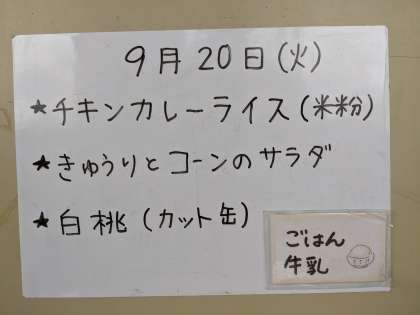 9月20日(火)
★チキンカレーライス(米粉)
★きゅうりとコーンのサラダ
★白桃(カット缶)
ごはん
牛乳